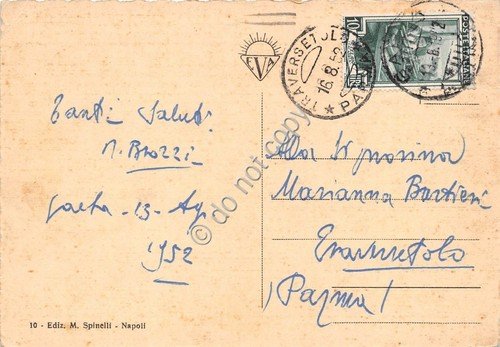 Tanti Saluti
M. Brozzi
Gaeta - 13 - Ag.
1952
10 - Ediz. M. Spinelli - Napoli
EVA
TRAVERSETOLO
16.8.52
PARMA
10
Alla Signorina
Marianna Barbieri
Traversetolo
(Parma)
do not copy